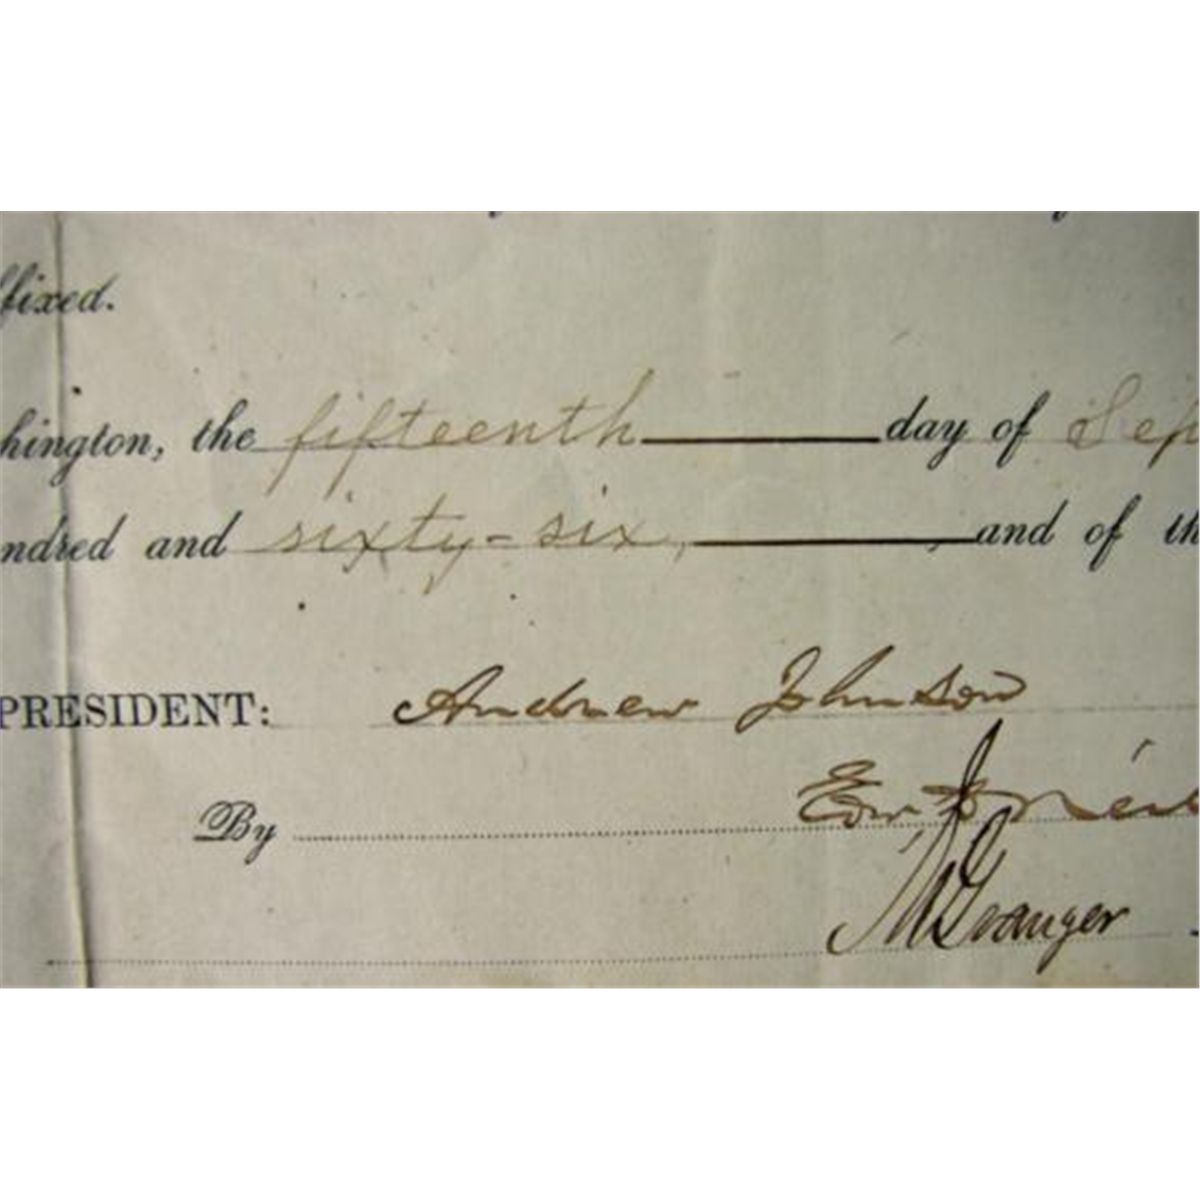 ffixed.
hington, the fifteenth day of Sep
ndred and sixty-six, and of th
PRESIDENT: Andrew Johnson
By Edw. D. Neil
Granger